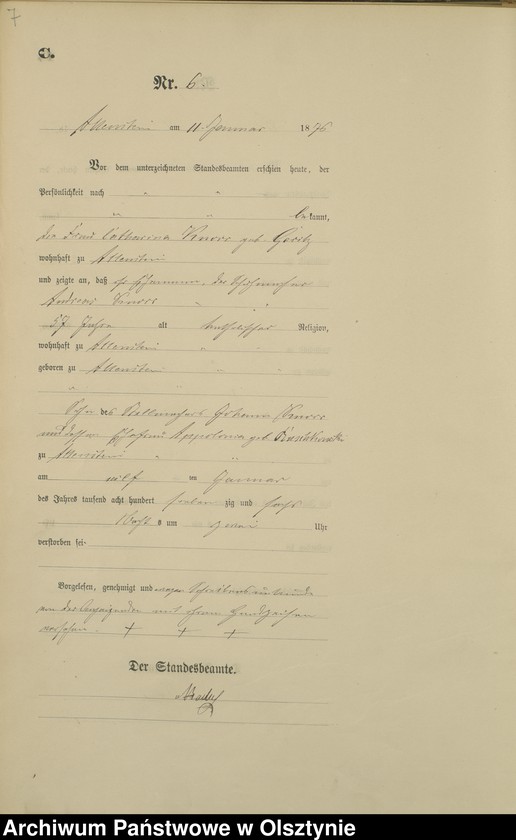 7
C.
Nr. 6.
Allenstein am 11 Januar 1876
Vor dem unterzeichneten Standesbeamten erschien heute, der
Persönlichkeit nach
bekannt,
die Frau Catharina Knorr geb.
wohnhaft zu Allenstein
und zeigte an, daß ihr Ehemann, der Schuhmacher
Andreas Knorr
57 Jahre alt katholischer Religion,
wohnhaft zu Allenstein
geboren zu Allenstein
Sohn des Stellmachers Johann Knorr
und dessen Ehefrau Appolonia geb.
zu Allenstein
am elf ten Januar
des Jahres tausend acht hundert sieben zig und sechs
Nachts um zwei Uhr
verstorben sei
Vorgelesen, genehmigt und wegen Schreibensunkunde
von der Anzeigenden mit ihrem Handzeichen
versehen. + + +
Der Standesbeamte.
Archiwum Państwowe w Olsztynie